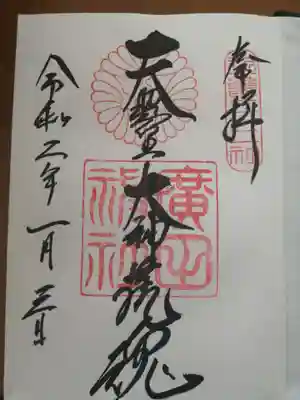 奉拝
天照大神荒魂
廣田
神社
令和二年一月三日